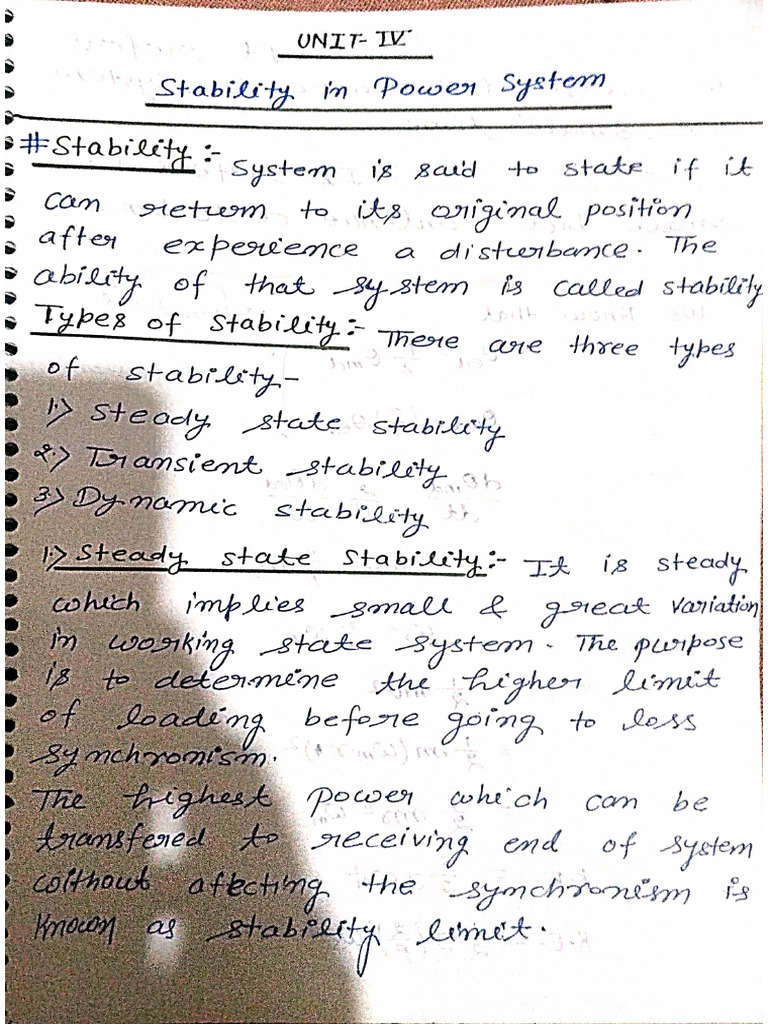 UNIT-IV
Stability in Power System
#Stability:- System is said to state if it
can return to its original position
after experience a disturbance. The
ability of that system is called stability
Types of Stability:- There are three types
of stability-
1.) Steady state stability
2.) Transient stability
3.) Dynamic stability
1.) Steady state Stability:- It is steady
which implies small & great variation
in working state system. The purpose
is to determine the higher limit
of loading before going to loss
synchronism.
The highest power which can be
transfered to receiving end of system
without afecting the synchronism is
known as stability limit.